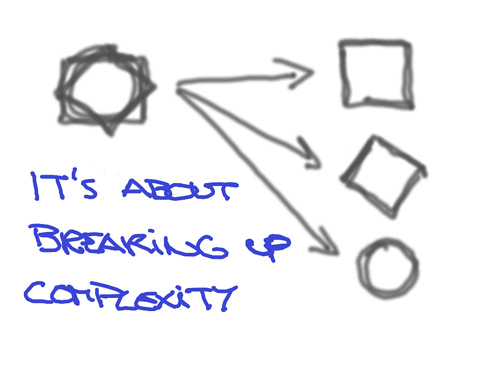 IT'S ABOUT
BREAKING UP
COMPLEXITY